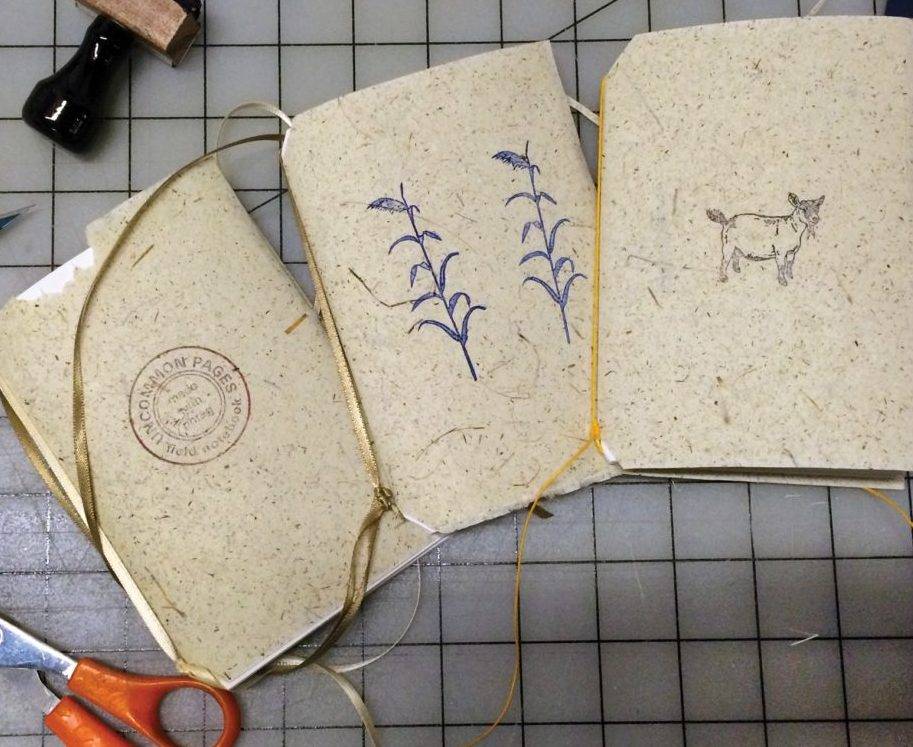 UNCOMMON PAGES
made
with
field notebook